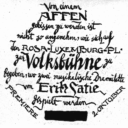 Von einem
AFFEN
gebissen zu werden ist
nicht so angenehm, wie sich auf
den ROSA-LUXEMBURG-PL.
zur Volksbühne zu
begeben, wo zwei musikalische Dramolette
von Erik Satie
gespielt werden
PREMIERE
2. OKTOBER